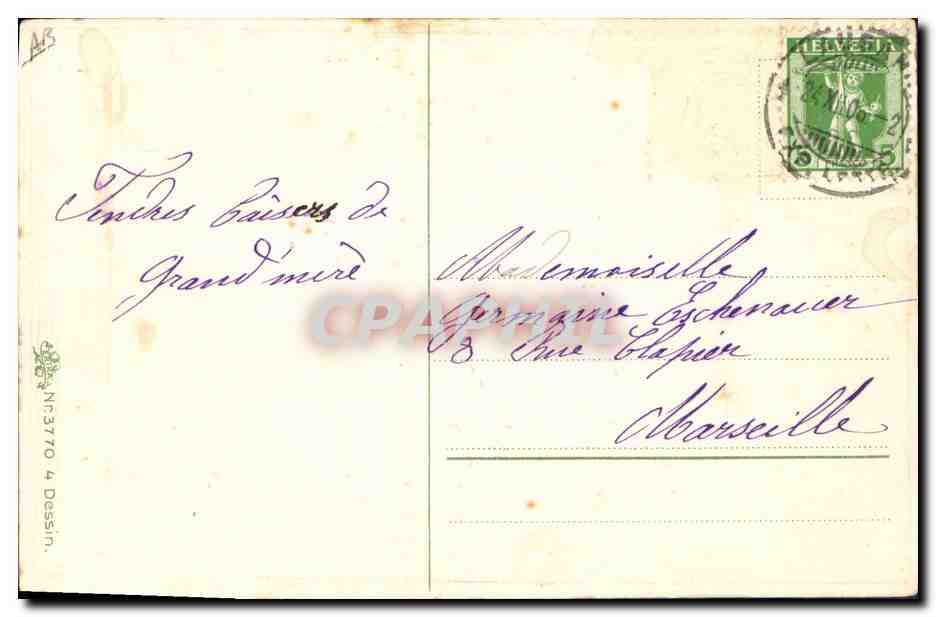 AB
HELVETIA
5
Tendres baisers de
Grand'mère
Mademoiselle
Germaine Eschenauer
8 Rue Clapier
Marseille
CPAPHIL
Nr. 3770 4 Dessin.